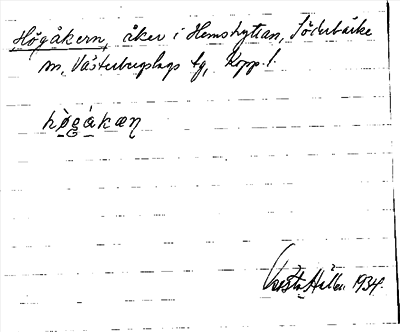 Högåkern, åker i Hemshyttan, Söderbärke
sn, Västerbergslags tg, Kopp. l.
hògákæn̥
Hallen 1934.